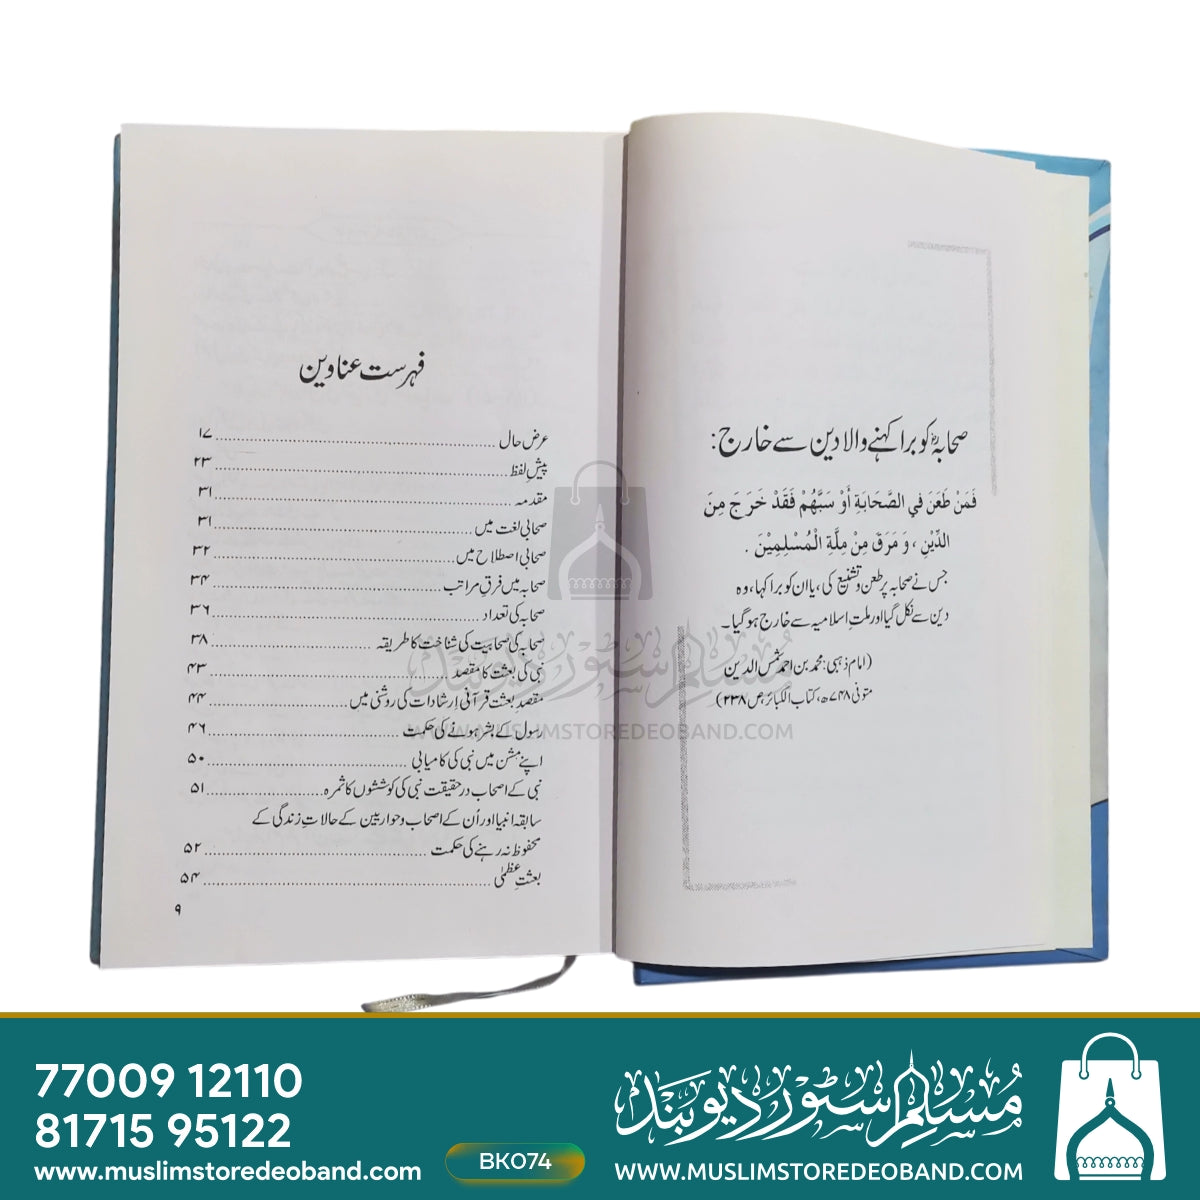 صحابہؓ کو برا کہنے والا دین سے خارج:
فَمَنْ طَعَنَ فِي الصَّحَابَةِ أَوْ سَبَّهُمْ فَقَدْ خَرَجَ مِنَ
الدِّيْنِ ، وَ مَرَقَ مِنْ مِلَّةِ الْمُسْلِمِيْنَ .
جس نے صحابہ پر طعن و تشنیع کی، یا ان کو برا کہا، وہ
دین سے نکل گیا اور ملتِ اسلامیہ سے خارج ہو گیا۔
(امام ذہبی: محمد بن احمد شمس الدین
متوفی ۷۴۸ھ، کتاب الکبائر، ص ۲۳۸)
فہرست عناوین
عرض حال ........ ۱۷
پیش لفظ ........ ۲۳
مقدمہ ........ ۳۱
صحابی لغت میں ........ ۳۱
صحابی اصطلاح میں ........ ۳۲
صحابہ میں فرقِ مراتب ........ ۳۴
صحابہ کی تعداد ........ ۳۶
صحابہ کی صحابیت کی شناخت کا طریقہ ........ ۳۸
نبی کی بعثت کا مقصد ........ ۴۳
مقصدِ بعثت قرآنی ارشادات کی روشنی میں ........ ۴۴
رسول کے بشر ہونے کی حکمت ........ ۴۶
اپنے مشن میں نبی کی کامیابی ........ ۵۰
نبی کے اصحاب در حقیقت نبی کی کوششوں کا ثمرہ ........ ۵۱
سابقہ انبیا اور اُن کے اصحاب و حواریین کے حالاتِ زندگی کے
محفوظ نہ رہنے کی حکمت ........ ۵۲
بعثتِ عظمیٰ ........ ۵۴
۹
مسلم سٹور دیوبند
WWW.MUSLIMSTOREDEOBAND.COM
77009 12110
81715 95122
www.muslimstoredeoband.com
BK074
مسلم سٹور دیوبند
WWW.MUSLIMSTOREDEOBAND.COM